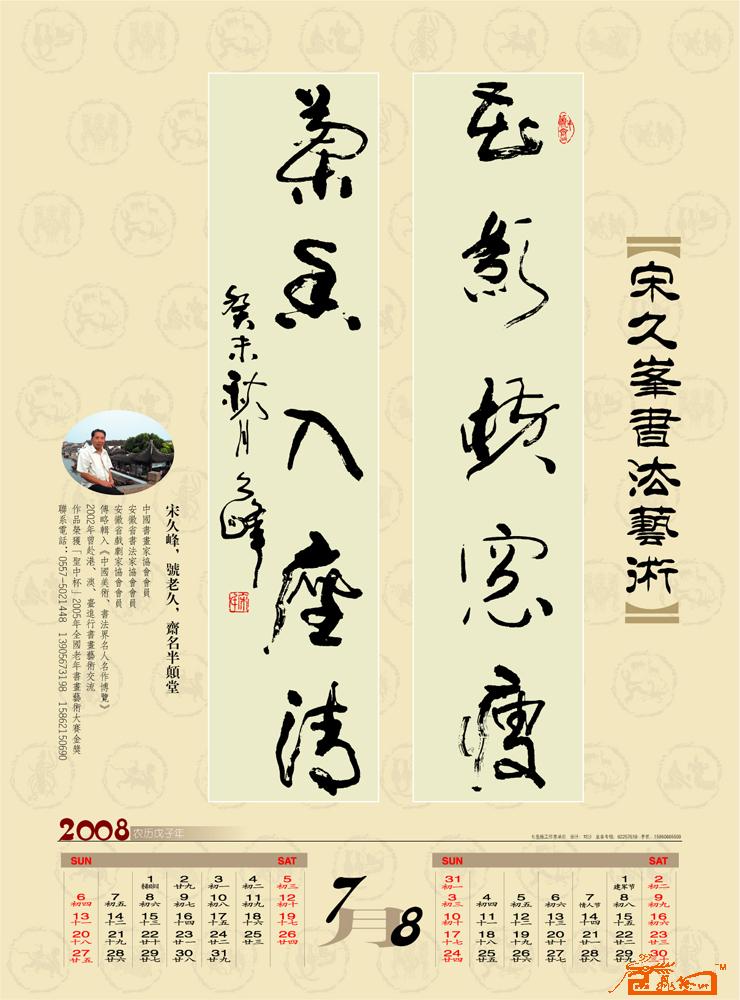 【宋久峯書法藝術】
花影横窓瘦
茶香入座清
癸未秋月 久峰
宋久峰，號老久，齋名半顛堂
中國書畫家協會會員
安徽省書法家協會會員
安徽省戲劇家協會會員
傳略輯入《中國美術、書法界名人名作博覽》
2002年曾赴港、澳、臺進行書畫藝術交流
作品榮獲「聖中杯」2005年全國老年書畫藝術大賽金獎
聯系電話：0557-5021448 13905673198 15862150690
2008 农历戊子年
SUN SAT
1 2 3 4 5
廿九 初一 初二 初三
6 7 8 9 10 11 12
初四 初五 初六 初七 初八 初九 初十
13 14 15 16 17 18 19
十一 十二 十三 十四 十五 十六 十七
20 21 22 23 24 25 26
十八 十九 二十 廿一 廿二 廿三 廿四
27 28 29 30 31
廿五 廿六 廿七 廿八 廿九
7月8
SUN SAT
31 1 2
初一 建军节 初二
3 4 5 6 7 8 9
初三 初四 初五 初六 情人节 初八 初九
10 11 12 13 14 15 16
初十 十一 十二 十三 十四 十五 十六
17 18 19 20 21 22 23
十七 十八 十九 二十 廿一 廿二 廿三
24 25 26 27 28 29 30
廿四 廿五 廿六 廿七 廿八 廿九 三十